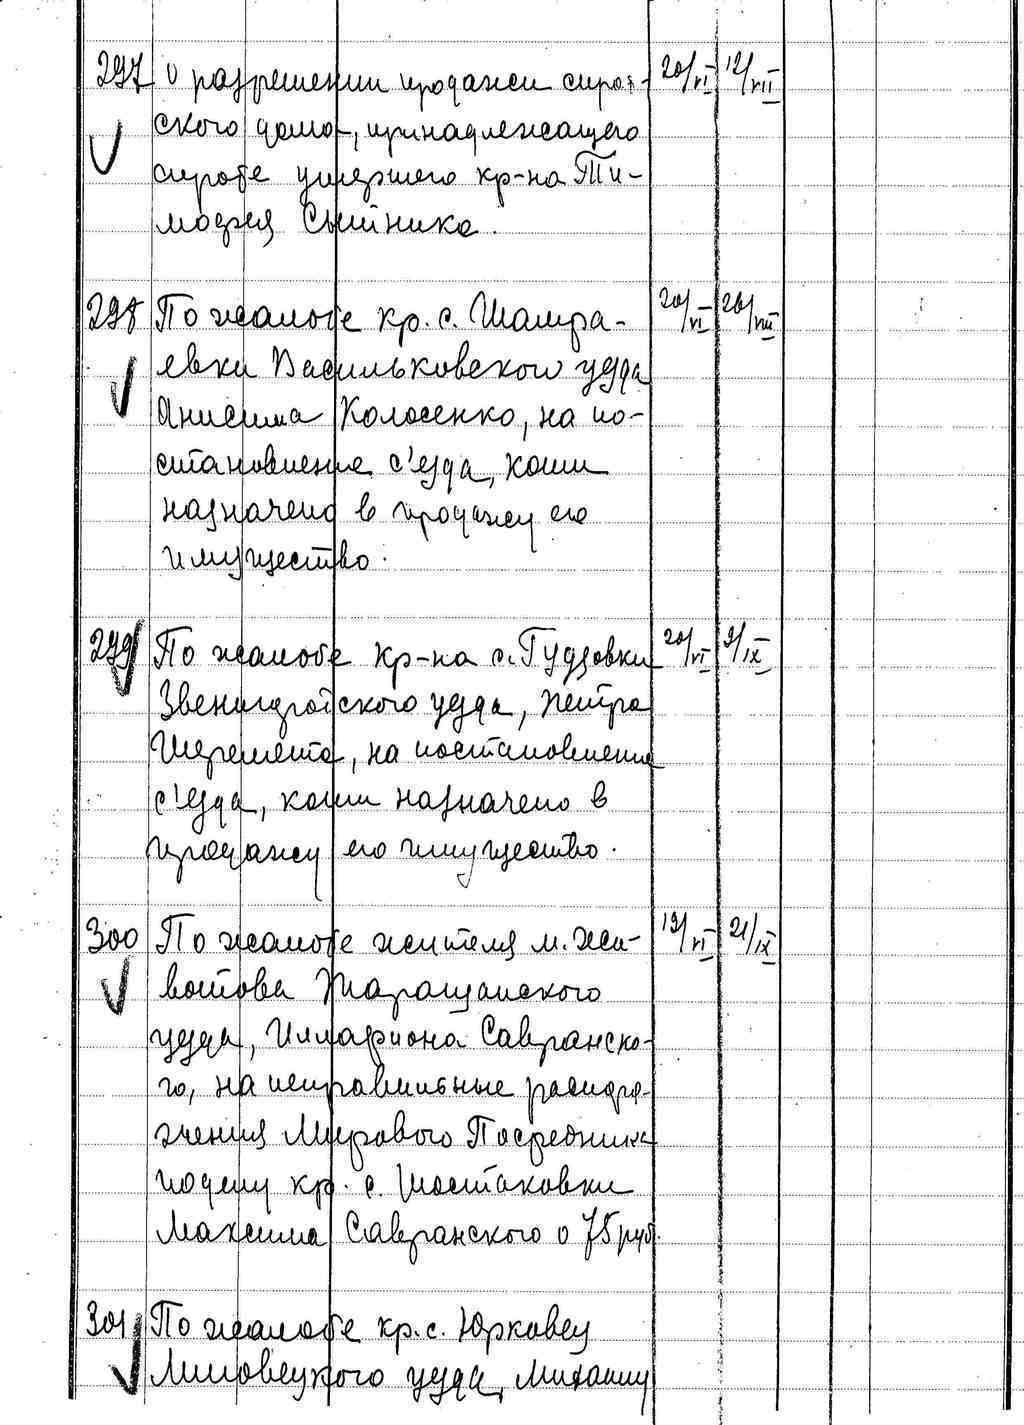 297 О разрешении продажи сирот- 20/VI 12/VII
ского дома, принадлежащего
сироте умершего кр-на Ти-
мофея Сытника.
298 По жалобе кр. с. Шамра- 20/VI 26/VIII
евки Васильковского уезда
Анисима Колосенко, на по-
становление с'езда, коим
назначено в продажу его
имущество.
299 По жалобе кр-на с. Гудзовки 20/VI 9/IX
Звенигородского уезда, Петра
Шеремета, на постановление
с'езда, коим назначено в
продажу его имущество.
300 По жалобе жителя м. Жи- 19/VI 21/IX
вотова Таращанского
уезда, Иллариона Савранско-
го, на неправильные распоря-
жения Мирового Посредника
по делу кр. с. Шостаковки
Максима Савранского о 75 руб.
301 По жалобе кр. с. Юрковец
Липовецкого уезда,